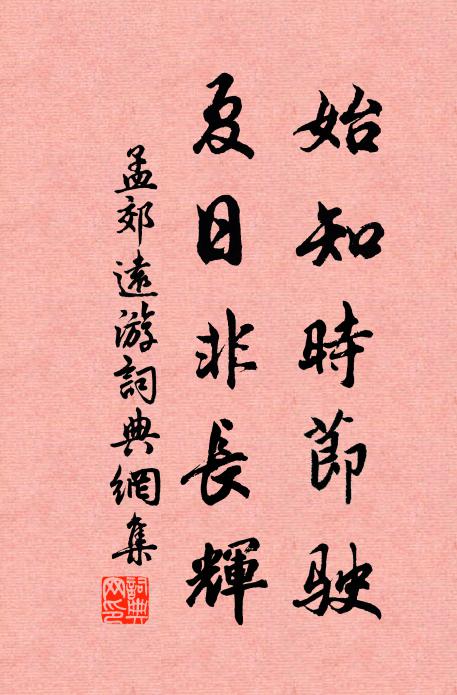 始知時節駛
夏日非長輝
孟郊遠游詞典網集
詞典網印